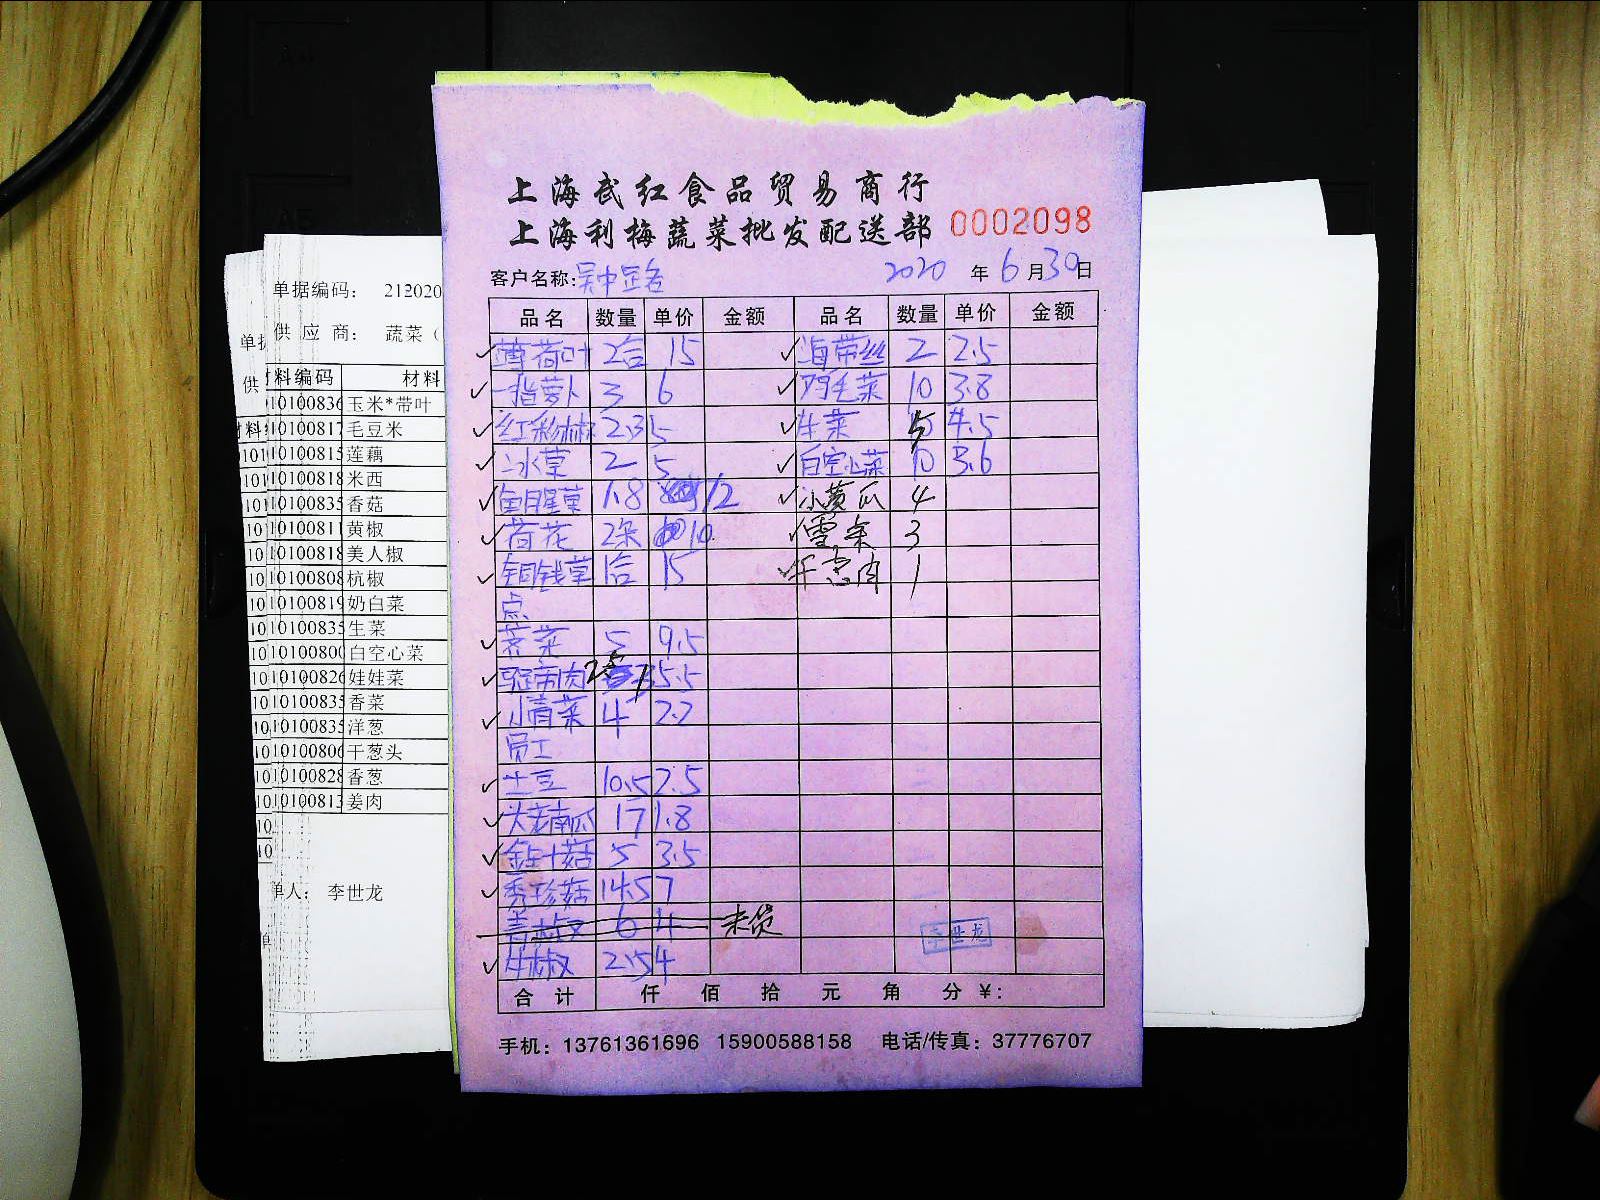 上海武红食品贸易商行
上海利梅蔬菜批发配送部 0002098
客户名称: 吴中路 2020 年 6 月 30 日
品名 数量 单价 金额 品名 数量 单价 金额
薄荷叶 2合 15 海带丝 2 2.5
一指萝卜 3 6 鸡毛菜 10 3.8
红彩椒 2.3 5 生菜 4.5
冰草 2 5 白空心菜 10 3.6
鱼腥草 1.8 12 小黄瓜 4
荷花 2朵 10 雪菜 3
铜钱草 1合 15 干葱肉 1
点
荠菜 5 9.5
豌帝肉 5.5
小青菜 4 2.2
员工
土豆 10.5 2.5
大老南瓜 17 1.8
金针菇 5 3.5
秀珍菇 14.5 7
青椒 6 4 未货
牛椒 2.5 4
李世龙
合计 仟 佰 拾 元 角 分 ¥:
手机: 13761361696 15900588158 电话/传真: 37776707
单据编码: 212020
供应商: 蔬菜（
料编码 材料
10100836 玉米*带叶
10100817 毛豆米
10100815 莲藕
10100818 米西
10100835 香菇
10100811 黄椒
10100818 美人椒
10100808 杭椒
10100819 奶白菜
10100835 生菜
10100800 白空心菜
10100826 娃娃菜
10100835 香菜
10100835 洋葱
10100806 干葱头
10100828 香葱
10100813 姜肉
单人: 李世龙